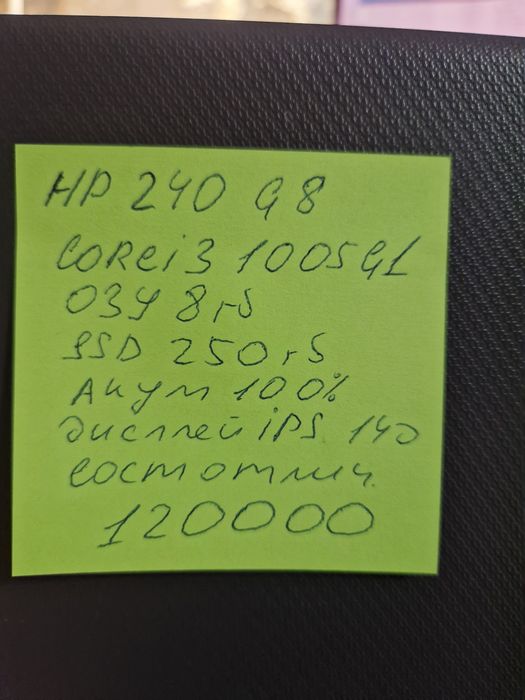 HP 240 G8
COREi3 1005G1
ОЗУ 8гб
SSD 250гб
Акум 100%
дисплей iPS 14д
сост отлич.
120000